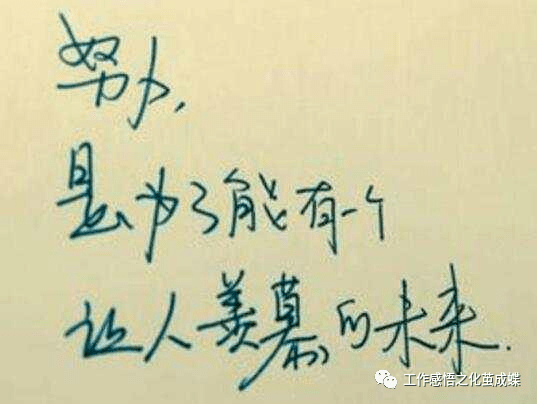 努力，
是为了能有一个
让人羡慕的未来.
工作感悟之化茧成蝶